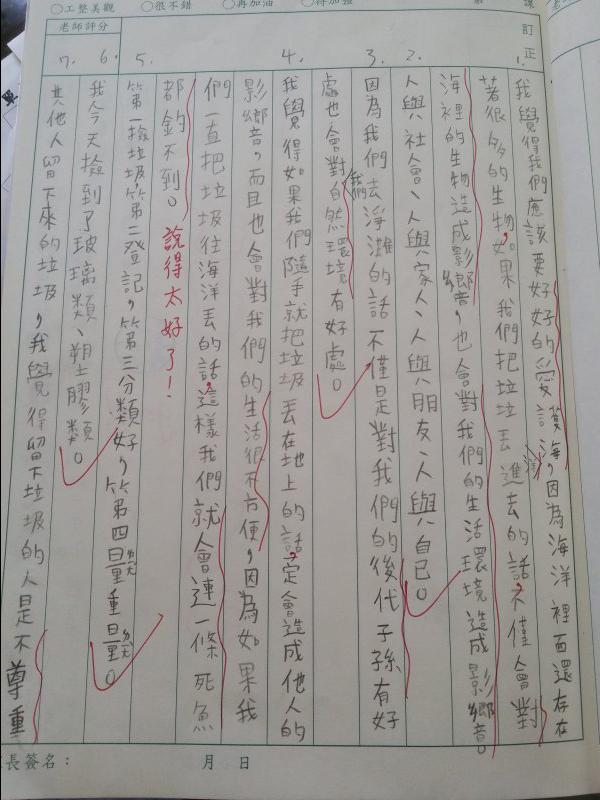 ○工整美觀 ○很不錯 ○再加油 ○待加強
老師評分
訂正
1.
我覺得我們應該要好好的愛護海，因為海洋裡面還存在
著很多的生物，如果我們把垃圾丟進去的話，不僅會對
海裡的生物造成影響，也會對我們的生活環境造成影響。
2.
人與社會、人與家人、人與朋友、人與自己。
3.
因為我們去淨灘的話不僅是對我們的後代子孫有好
處也會對我們自然環境有好處。
4.
我覺得如果我們隨手就把垃圾丟在地上的話，一定會造成他人的
影響，而且也會對我們的生活很不方便，因為如果我
們一直把垃圾往海洋丟的話，這樣我們就會連一條死魚
都釣不到。說得太好了！
5.
第一撿垃圾，第二登記，第三分類好，第四量重量。
6.
我今天撿到了玻璃類、塑膠類。
7.
其他人留下來的垃圾，我覺得留下垃圾的人是不尊重
長簽名： 月 日